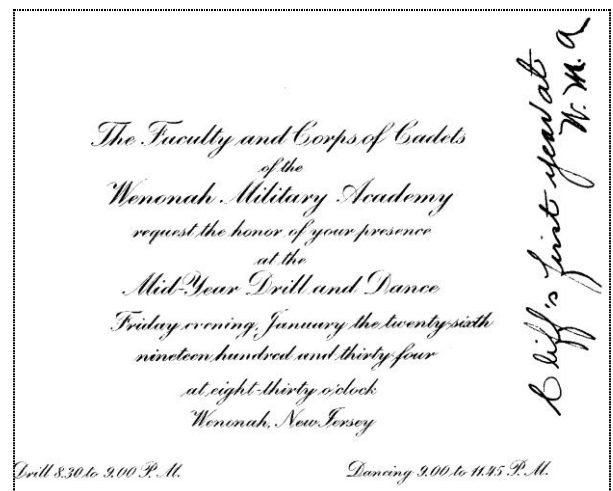 The Faculty and Corps of Cadets
of the
Wenonah Military Academy
request the honor of your presence
at the
Mid-Year Drill and Dance
Friday evening, January the twenty-sixth
nineteen hundred and thirty-four
at eight-thirty o'clock
Wenonah, New Jersey
Drill 8.30 to 9.00 P.M.
Dancing 9.00 to 11.45 P.M.
Cliff's first year at
W. M. A